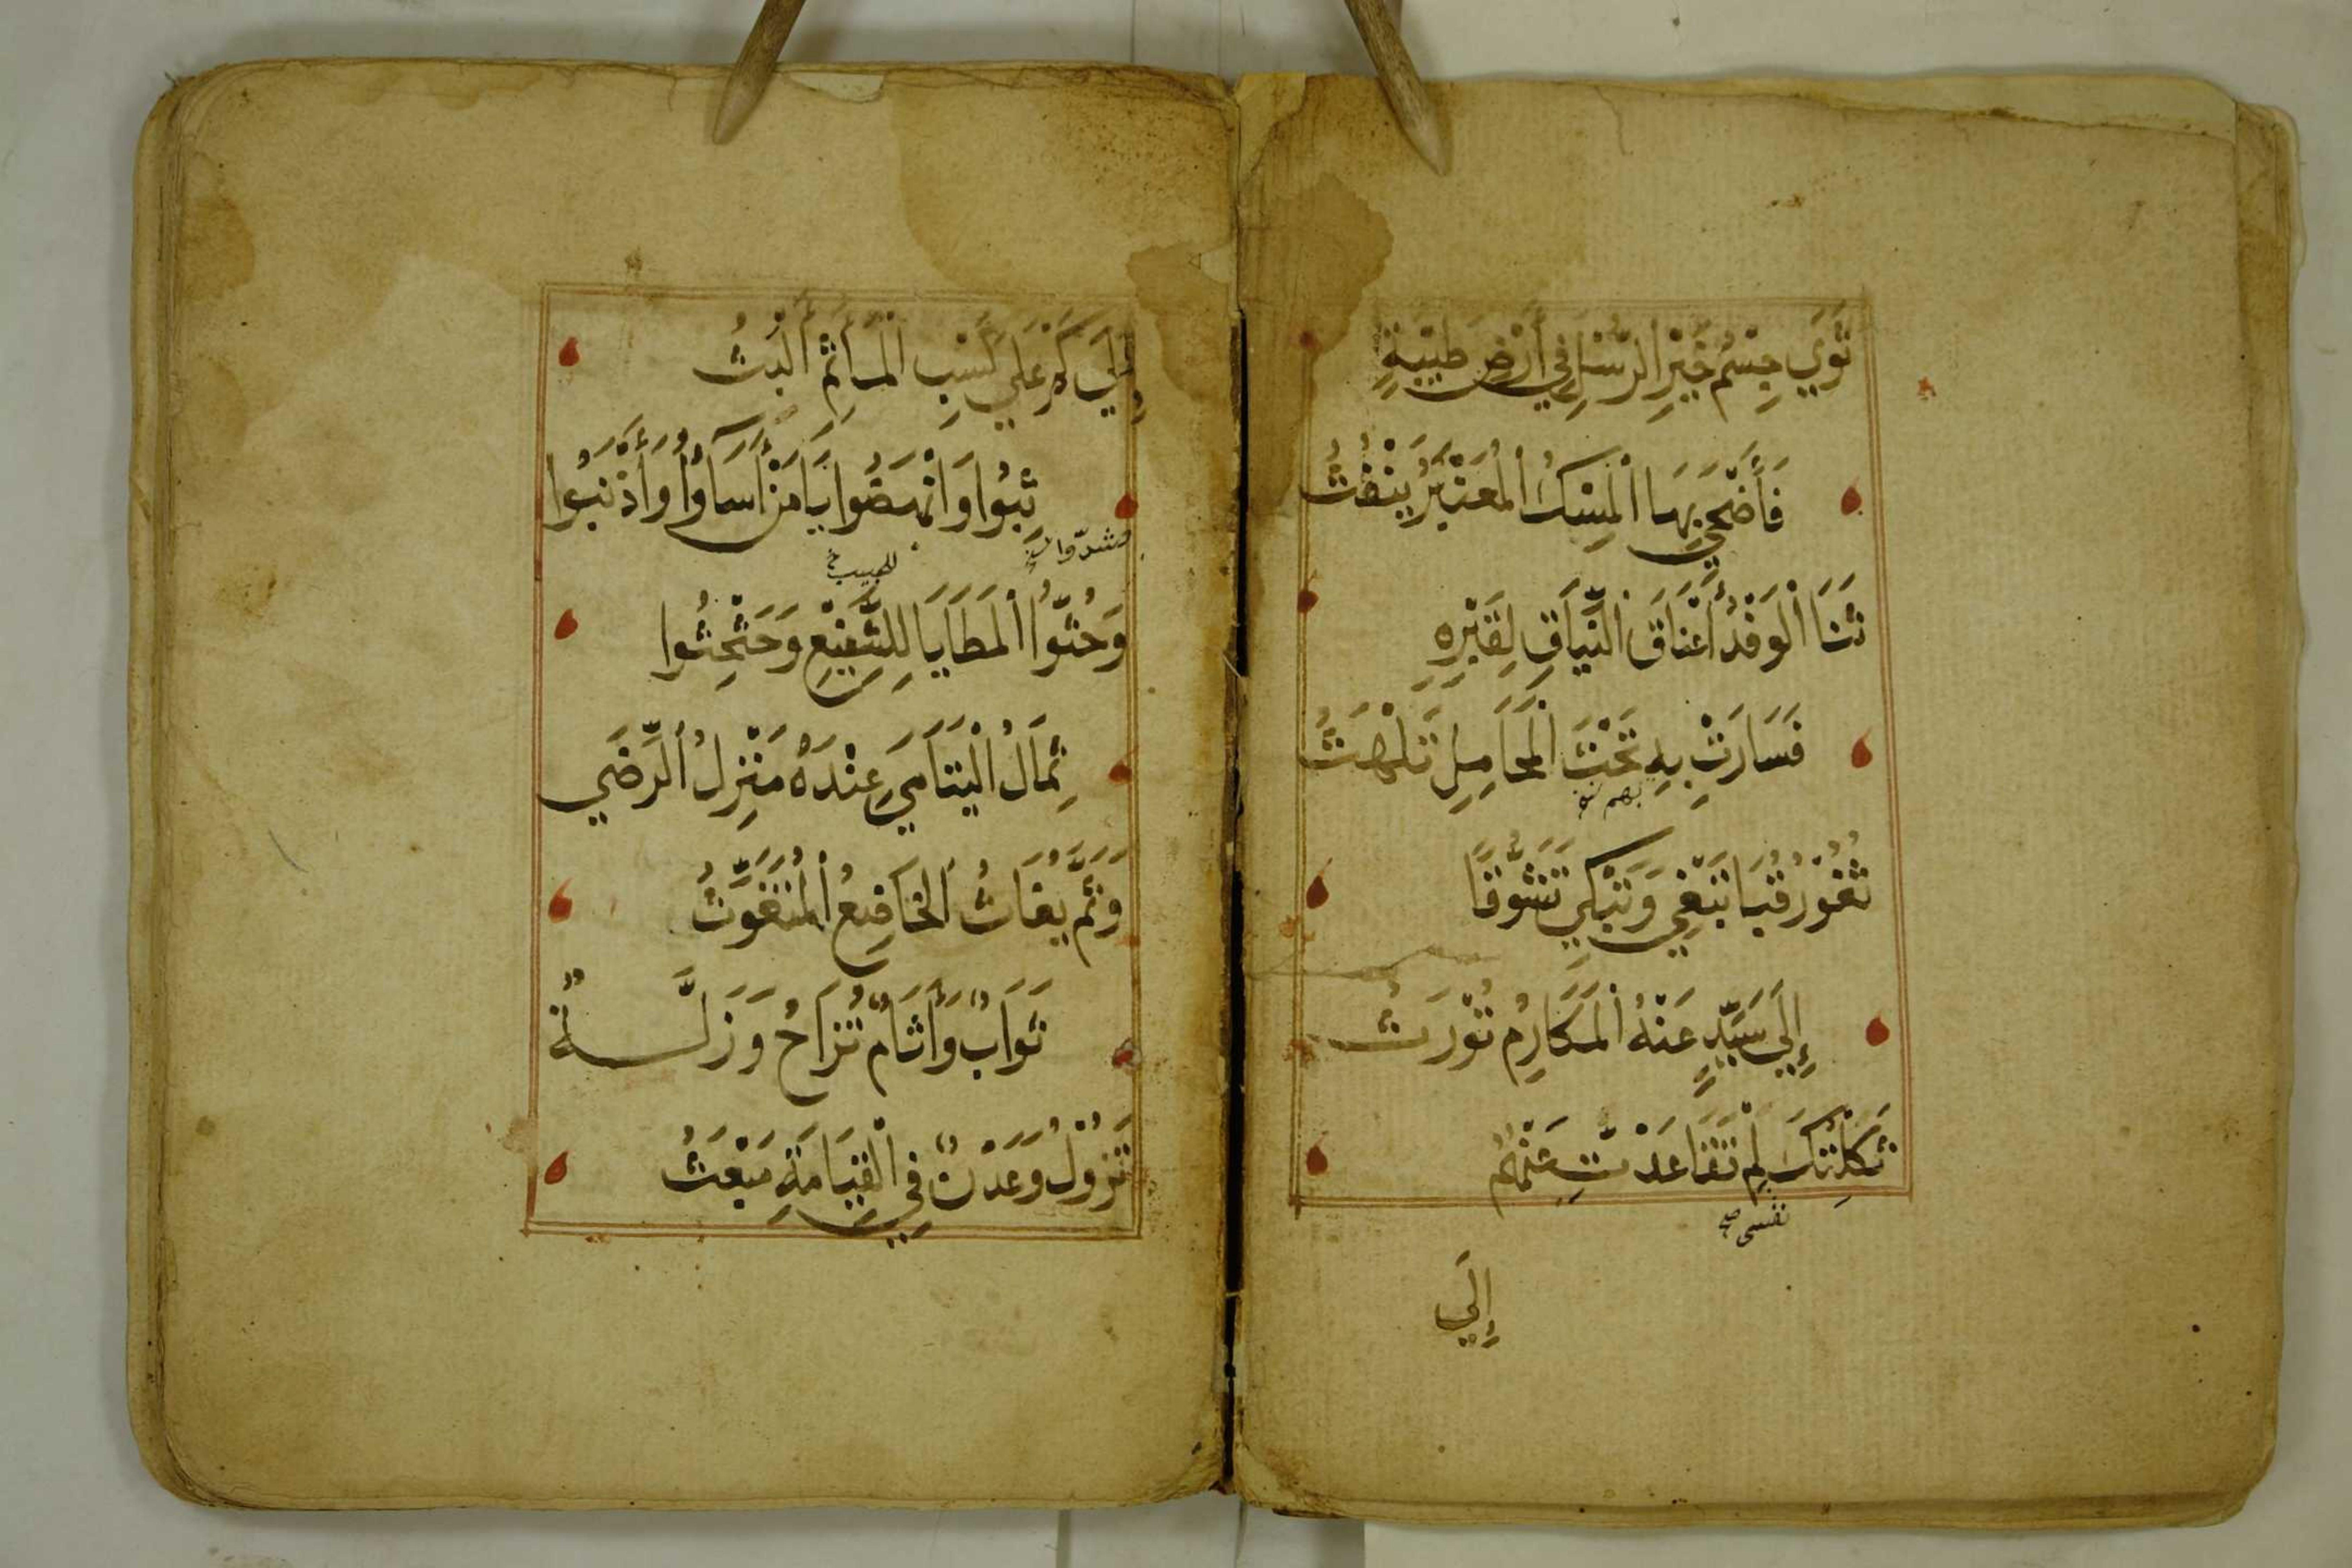 ثَوَي جِسْمُ خَيْرِ الرُّسْلِ فِي أَرْضِ طَيْبَةٍ
فَأَضْحَي بِهَا الْمِسْكُ الْمُعَنْبَرُ يَنْفُثُ
ثَنَا الْوَفْدُ أَعْنَاقَ النِّيَاقِ لِقَبْرِهِ
فَسَارَتْ بِهِ تَحْتَ الْمَحَامِلِ تَلْهَثُ
بهم
ثُغُوْرُ قُبَا تَبْغِي وَتَبْكِي تَشَوُّقًا
إِلَي سَيِّدٍ عَنْهُ الْمَكَارِمُ تُوْرَثُ
ثَكِلْتُكَ لِمْ تَقَاعَدْتَّ عَنْهُمُ
نفسى صح
إِلَي
إِلَي كَمْ عَلَي كَسْبِ الْمَأَثِمْ أَلْبَثُ
ثِبُوا وَانْهَضُوا يَا مَنْ أَسَاؤُا وَأَذْنَبُوا
للحبيب
وَحُثُّوا الْمَطَايَا لِلشَّفِيْعِ وَحَثْحِثُوا
ثِمَالُ الْيَتَامَي عِنْدَهُ مَنْزِلُ الرِّضَي
وَثَمَّ يُغَاثُ الْخَاضِعُ الْمُتَغَوِّثُ
ثَوَابٌ وَأَثَامٌ تُزَاحُ وَزَلَّةٌ
تَزُوْلُ وَعَدْنٌ فِي الْقِيَامَةِ مَبْعَثُ